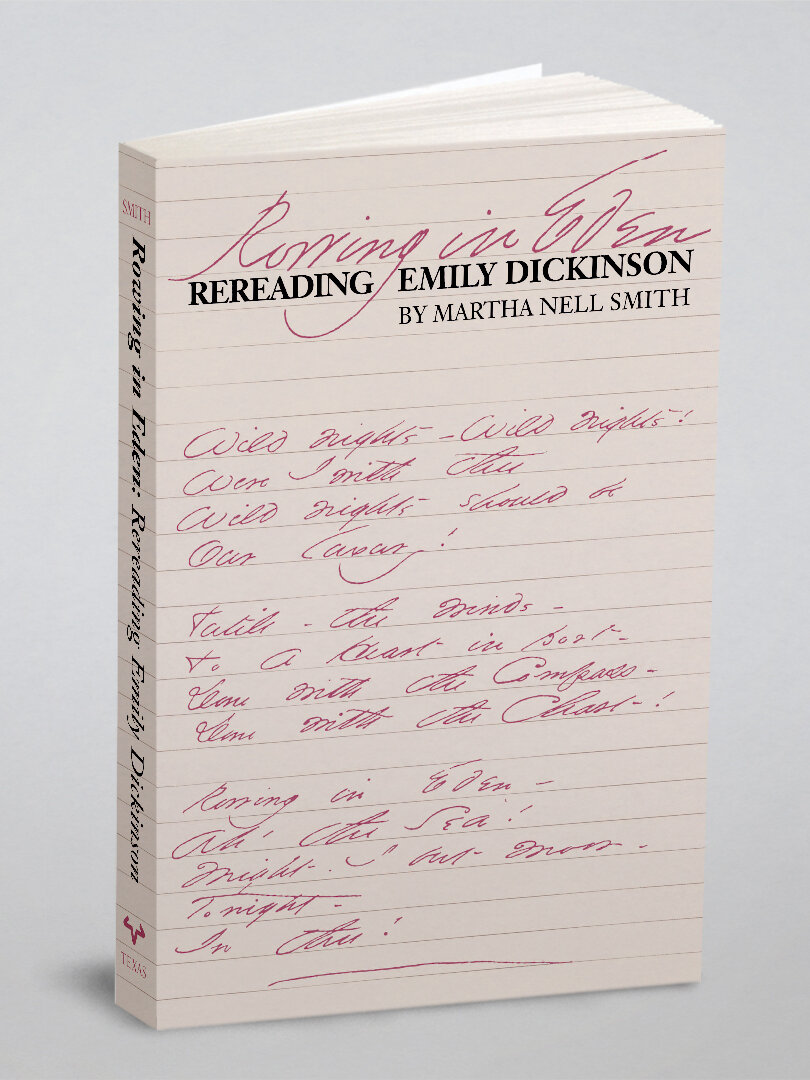 SMITH
Rowing in Eden: Rereading Emily Dickinson
TEXAS
Rowing in Eden
REREADING EMILY DICKINSON
BY MARTHA NELL SMITH
Wild nights - Wild nights!
Were I with thee
Wild nights should be
Our luxury!
Futile - the winds -
To a Heart in port -
Done with the Compass -
Done with the Chart - !
Rowing in Eden -
Ah! the Sea!
Might I but moor -
Tonight -
In thee!